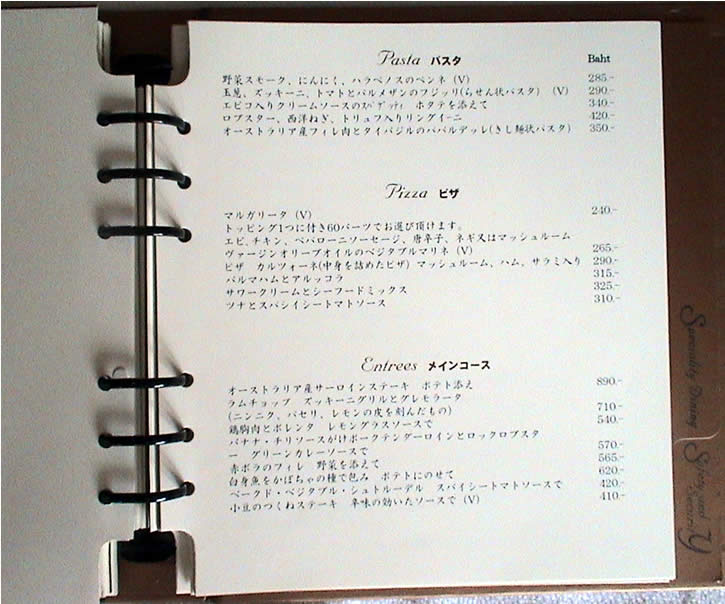 Pasta パスタ Baht
野菜スモーク、にんにく、ハラペノスのペンネ (V) 285.-
玉葱、ズッキーニ、トマトとパルメザンのフジッリ(らせん状パスタ) (V) 290.-
エビコ入りクリームソースのスパゲッティ ホタテを添えて 340.-
ロブスター、西洋ねぎ、トリュフ入りリングイーニ 420.-
オーストラリア産フィレ肉とタイバジルのパパルデッレ(きし麺状パスタ) 350.-
Pizza ピザ
マルガリータ (V) 240.-
トッピング1つに付き60バーツでお選び頂けます。
エビ、チキン、ペパローニソーセージ、唐辛子、ネギ又はマッシュルーム
ヴァージンオリーブオイルのベジタブルマリネ (V) 265.-
ピザ カルツォーネ(中身を詰めたピザ) マッシュルーム、ハム、サラミ入り 290.-
パルマハムとアルッコラ 315.-
サワークリームとシーフードミックス 325.-
ツナとスパイシイートマトソース 310.-
Entrees メインコース
オーストラリア産サーロインステーキ ポテト添え 890.-
ラムチョップ ズッキーニグリルとグレモラータ
(ニンニク、パセリ、レモンの皮を刻んだもの) 710-
鶏胸肉とポレンタ レモングラスソースで 540.-
バナナ・チリソースがけポークテンダーロインとロックロブスタ
ー グリーンカレーソースで 570.-
赤ボラのフィレ 野菜を添えて 565.-
白身魚をかぼちゃの種で包み ポテトにのせて 620.-
ベークド・ベジタブル・シュトルーデル スパイシートマトソースで 420.-
小豆のつくねステーキ 辛味の効いたソースで (V) 410.-
Speciality Dining